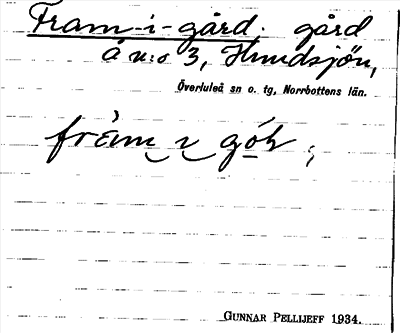 Fram-i-gård. gård
å n:o 3, Hundsjön,
Överluleå sn o. tg, Norrbottens län.
fràm ı gó̱h ;
GUNNAR PELLIJEFF 1934.